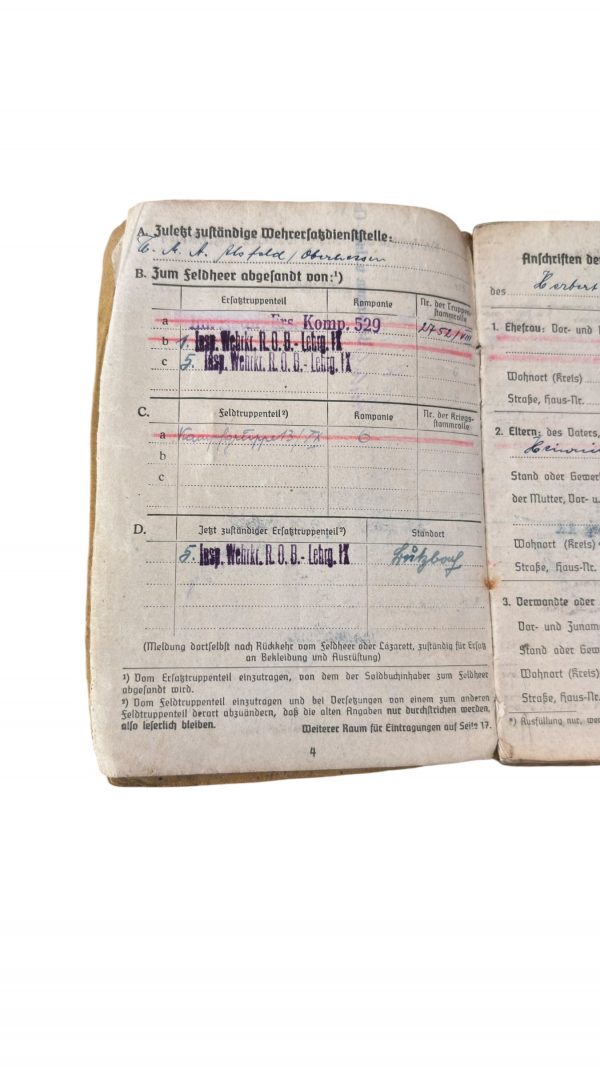 A. Zuletzt zuständige Wehrersatzdienststelle:
W. M. A. Alsfeld / Oberhessen
B. Zum Feldheer abgesandt von:¹)
Ersatztruppenteil Kompanie Nr. der Truppenstammrolle
a Ers. Komp. 529
b 1. Insp. Wehrkr. R. O. B.- Lehrg. IX
c 5. Insp. Wehrkr. R. O. B.- Lehrg. IX
C. Feldtruppenteil²) Kompanie Nr. der Kriegsstammrolle
a Kampfgruppe 13/IX
b
c
D. Jetzt zuständiger Ersatztruppenteil²) Standort
5. Insp. Wehrkr. R. O. B.- Lehrg. IX Butzbach
(Meldung dortselbst nach Rückkehr vom Feldheer oder Lazarett, zuständig für Ersatz
an Bekleidung und Ausrüstung)
¹) Vom Ersatztruppenteil einzutragen, von dem der Soldbuchinhaber zum Feldheer
abgesandt wird.
²) Vom Feldtruppenteil einzutragen und bei Versetzungen von einem zum anderen
Feldtruppenteil derart abzuändern, daß die alten Angaben nur durchstrichen werden,
also leserlich bleiben.
Weiterer Raum für Eintragungen auf Seite 17.
4
Anschriften de
des Herbert
1. Ehefrau: Vor- und
Wohnort (Kreis)
Straße, Haus-Nr.
2. Eltern: des Vaters,
Stand oder Gewer
der Mutter, Vor- u.
Wohnort (Kreis)
Straße, Haus-Nr.
3. Verwandte oder
Vor- und Zunam
Stand oder Gew
Wohnort (Kreis)
Straße, Haus-Nr.
*) Ausfüllung nur, we